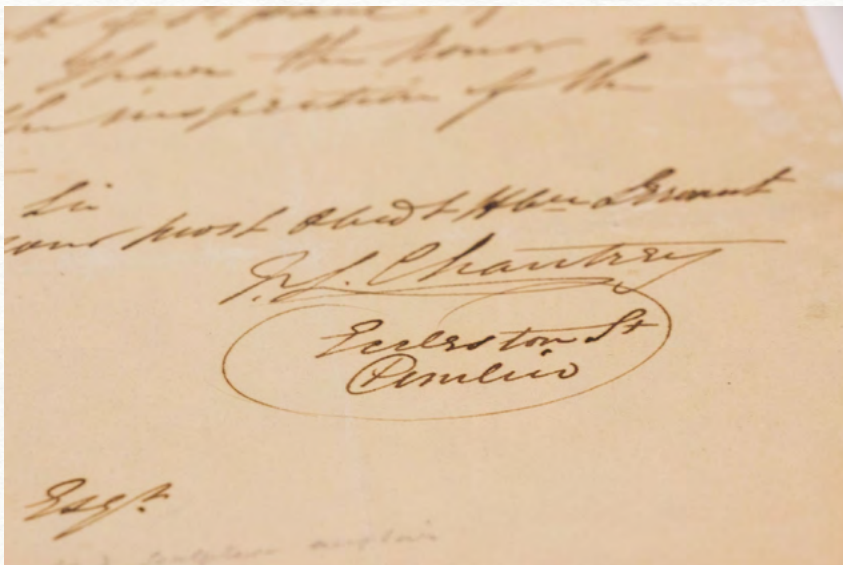 I have the honor to
the inspection of the
Sir
your most Obedt Hble Servant
F. L. Chantrey
Eccleston St
Pimlico
Esqr.
sculpteur anglais